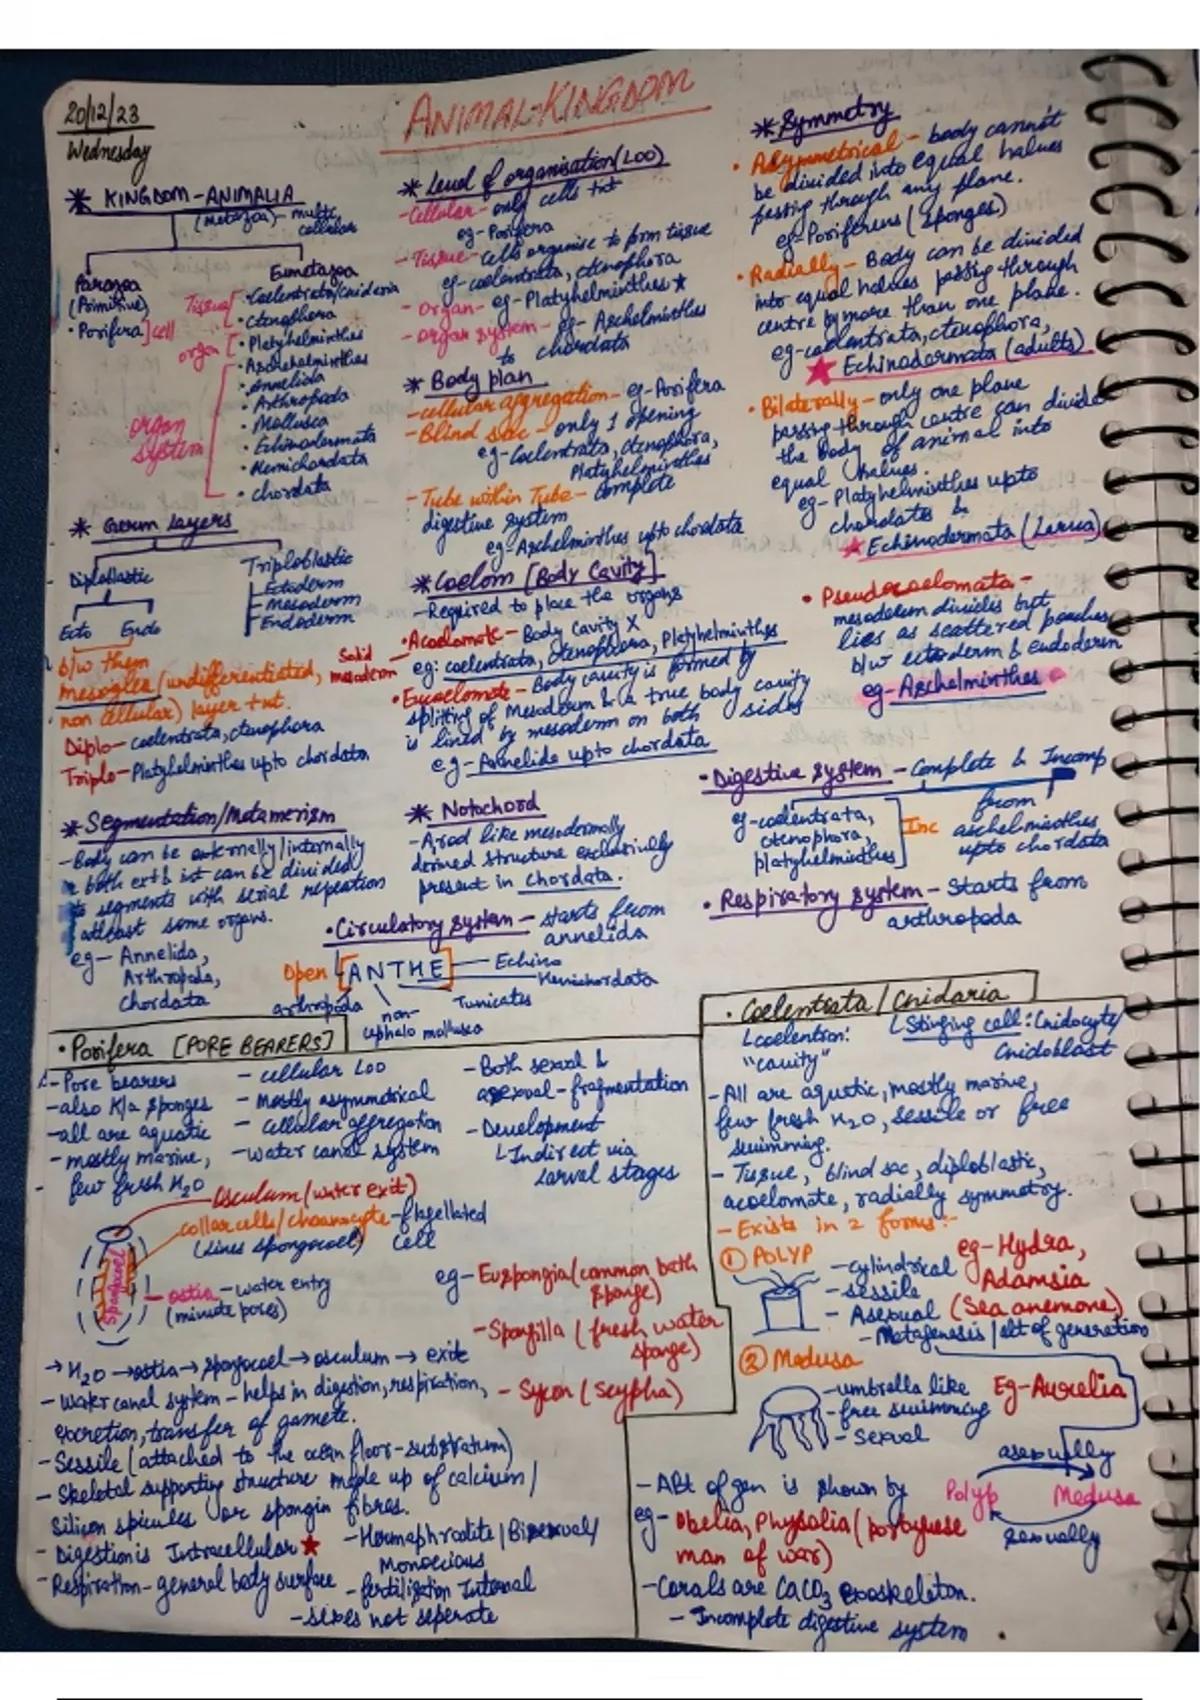 20/12/23
Wednesday
ANIMAL-KINGDOM
* KINGDOM-ANIMALIA
(metazoa)- multi
cellular
Parazoa
(Primitive)
• Porifera] cell
Eumetazoa
Tissue[ • Coelentrata/cnidaria
• Ctenophora
organ [ • Platyhelminthes
• Aschehelminthes
• Annelida
• Arthropoda
• Mollusca
• Echinodermata
• Hemichordata
• chordata
organ
system
* Germ layers
Diploblastic
Ecto Endo
Triploblastic
Ectoderm
Mesoderm
Endoderm
b/w them
mesoglea (undifferentiated,
non cellular) layer +nt.
Diplo- coelentrata, ctenophora
Triplo- Platyhelminthes upto chordata
* Level of organisation (LOO)
- Cellular- only cells +nt
eg- Porifera
- Tissue- cells organise to form tissue
eg- coelentrata, ctenophora
- organ- eg- Platyhelminthes ★
- organ system- eg- Aschelminthes
to chordata
* Body plan
- cellular aggregation- eg- Porifera
- Blind sac- only 1 opening
eg- Coelentrata, ctenophora,
Platyhelminthes
- Tube within Tube- complete
digestive system
eg- Aschelminthes upto chordata
* Coelom [Body Cavity]
- Required to place the organs
Solid
mesoderm
• Acoelomate- Body Cavity X
eg: coelentrata, ctenophora, Platyhelminthes
• Eucoelomate- Body cavity is formed by
splitting of Mesoderm & a true body cavity
is lined by mesoderm on both sides
eg- Annelida upto chordata
* Symmetry
• Asymmetrical- body cannot
be divided into equal halves
passing through any plane.
eg- Poriferens (sponges)
• Radially- Body can be divided
into equal halves passing through
centre by more than one plane.
eg- coelentrata, ctenophora,
★ Echinodermata (adults)
• Bilaterally- only one plane
passing through centre can divide
the body of animal into
equal halves.
eg- Platyhelminthes upto
chordates &
★ Echinodermata (Larva)
• Pseudocoelomata-
mesoderm divides but
lies as scattered pouches
b/w ectoderm & endoderm
eg- Aschelminthes
* Segmentation/Metamerism
- Body can be externally/internally
both ext & int can be divided
to segments with serial repetation
atleast some organs.
eg- Annelida,
Arthropoda,
Chordata
* Notochord
- A rod like mesodermally
derived structure exclusively
present in chordata.
• Circulatory system- starts from
annelida
Open [ANTHE]
Echino
Hemichordata
Tunicates
arthropoda
non-
cephalo mollusca
• Digestive system- Complete & Incomp
eg- coelentrata,
ctenophora,
platyhelminthes] Inc
from
aschelminthes
upto chordata
• Respiratory system- Starts from
arthropoda
• Porifera [PORE BEARERS]
- Pore bearers
- also k/a sponges
- all are aquatic
- mostly marine,
few fresh H2O
- cellular LOO
- Mostly asymmetrical
- cellular aggregation
- water canal system
- Both sexual &
asexual- fragmentation
- Development
Indirect via
larval stages
osculum (water exit)
collar cells/choanocyte- flagellated
(lines spongocoel) cell
ostia- water entry
(minute pores)
eg- Euspongia (common bath
sponge)
- Spongilla (fresh water
sponge)
- Sycon (Scypha)
→ H2O → ostia → spongocoel → osculum → exit
- Water canal system- helps in digestion, respiration,
excretion, transfer of gamete.
- Sessile (attached to the ocean floor-substratum)
- Skeletal supporting structure made up of calcium/
Silicon spicules or spongin fibres.
- Digestion is Intracellular ★
- Respiration- general body surface
- Haemaphrodite/Bisexual/
Monoecious
- fertilization Internal
- sexes not seperate
• Coelentrata/Cnidaria
coelentron:
"cavity"
Stinging cell: Cnidocyte/
Cnidoblast
- All are aquatic, mostly marine,
few fresh H2O, sessile or free
swimming.
- Tissue, blind sac, diploblastic,
acoelomate, radially symmetry.
- Exists in 2 forms:-
① POLYP
- cylindrical
- sessile
- Asexual
- Metagenesis/alt of generation
eg- Hydra,
Adamsia
(Sea anemone)
② Medusa
- umbrella like
- free swimming
- Sexual
Eg- Aurelia
asexually
Polyp Medusa
sexually
- Alt of gen is shown by
eg- Obelia, Physalia (portugese
man of war)
- Corals are CaCO3 exoskeleton.
- Incomplete digestive system